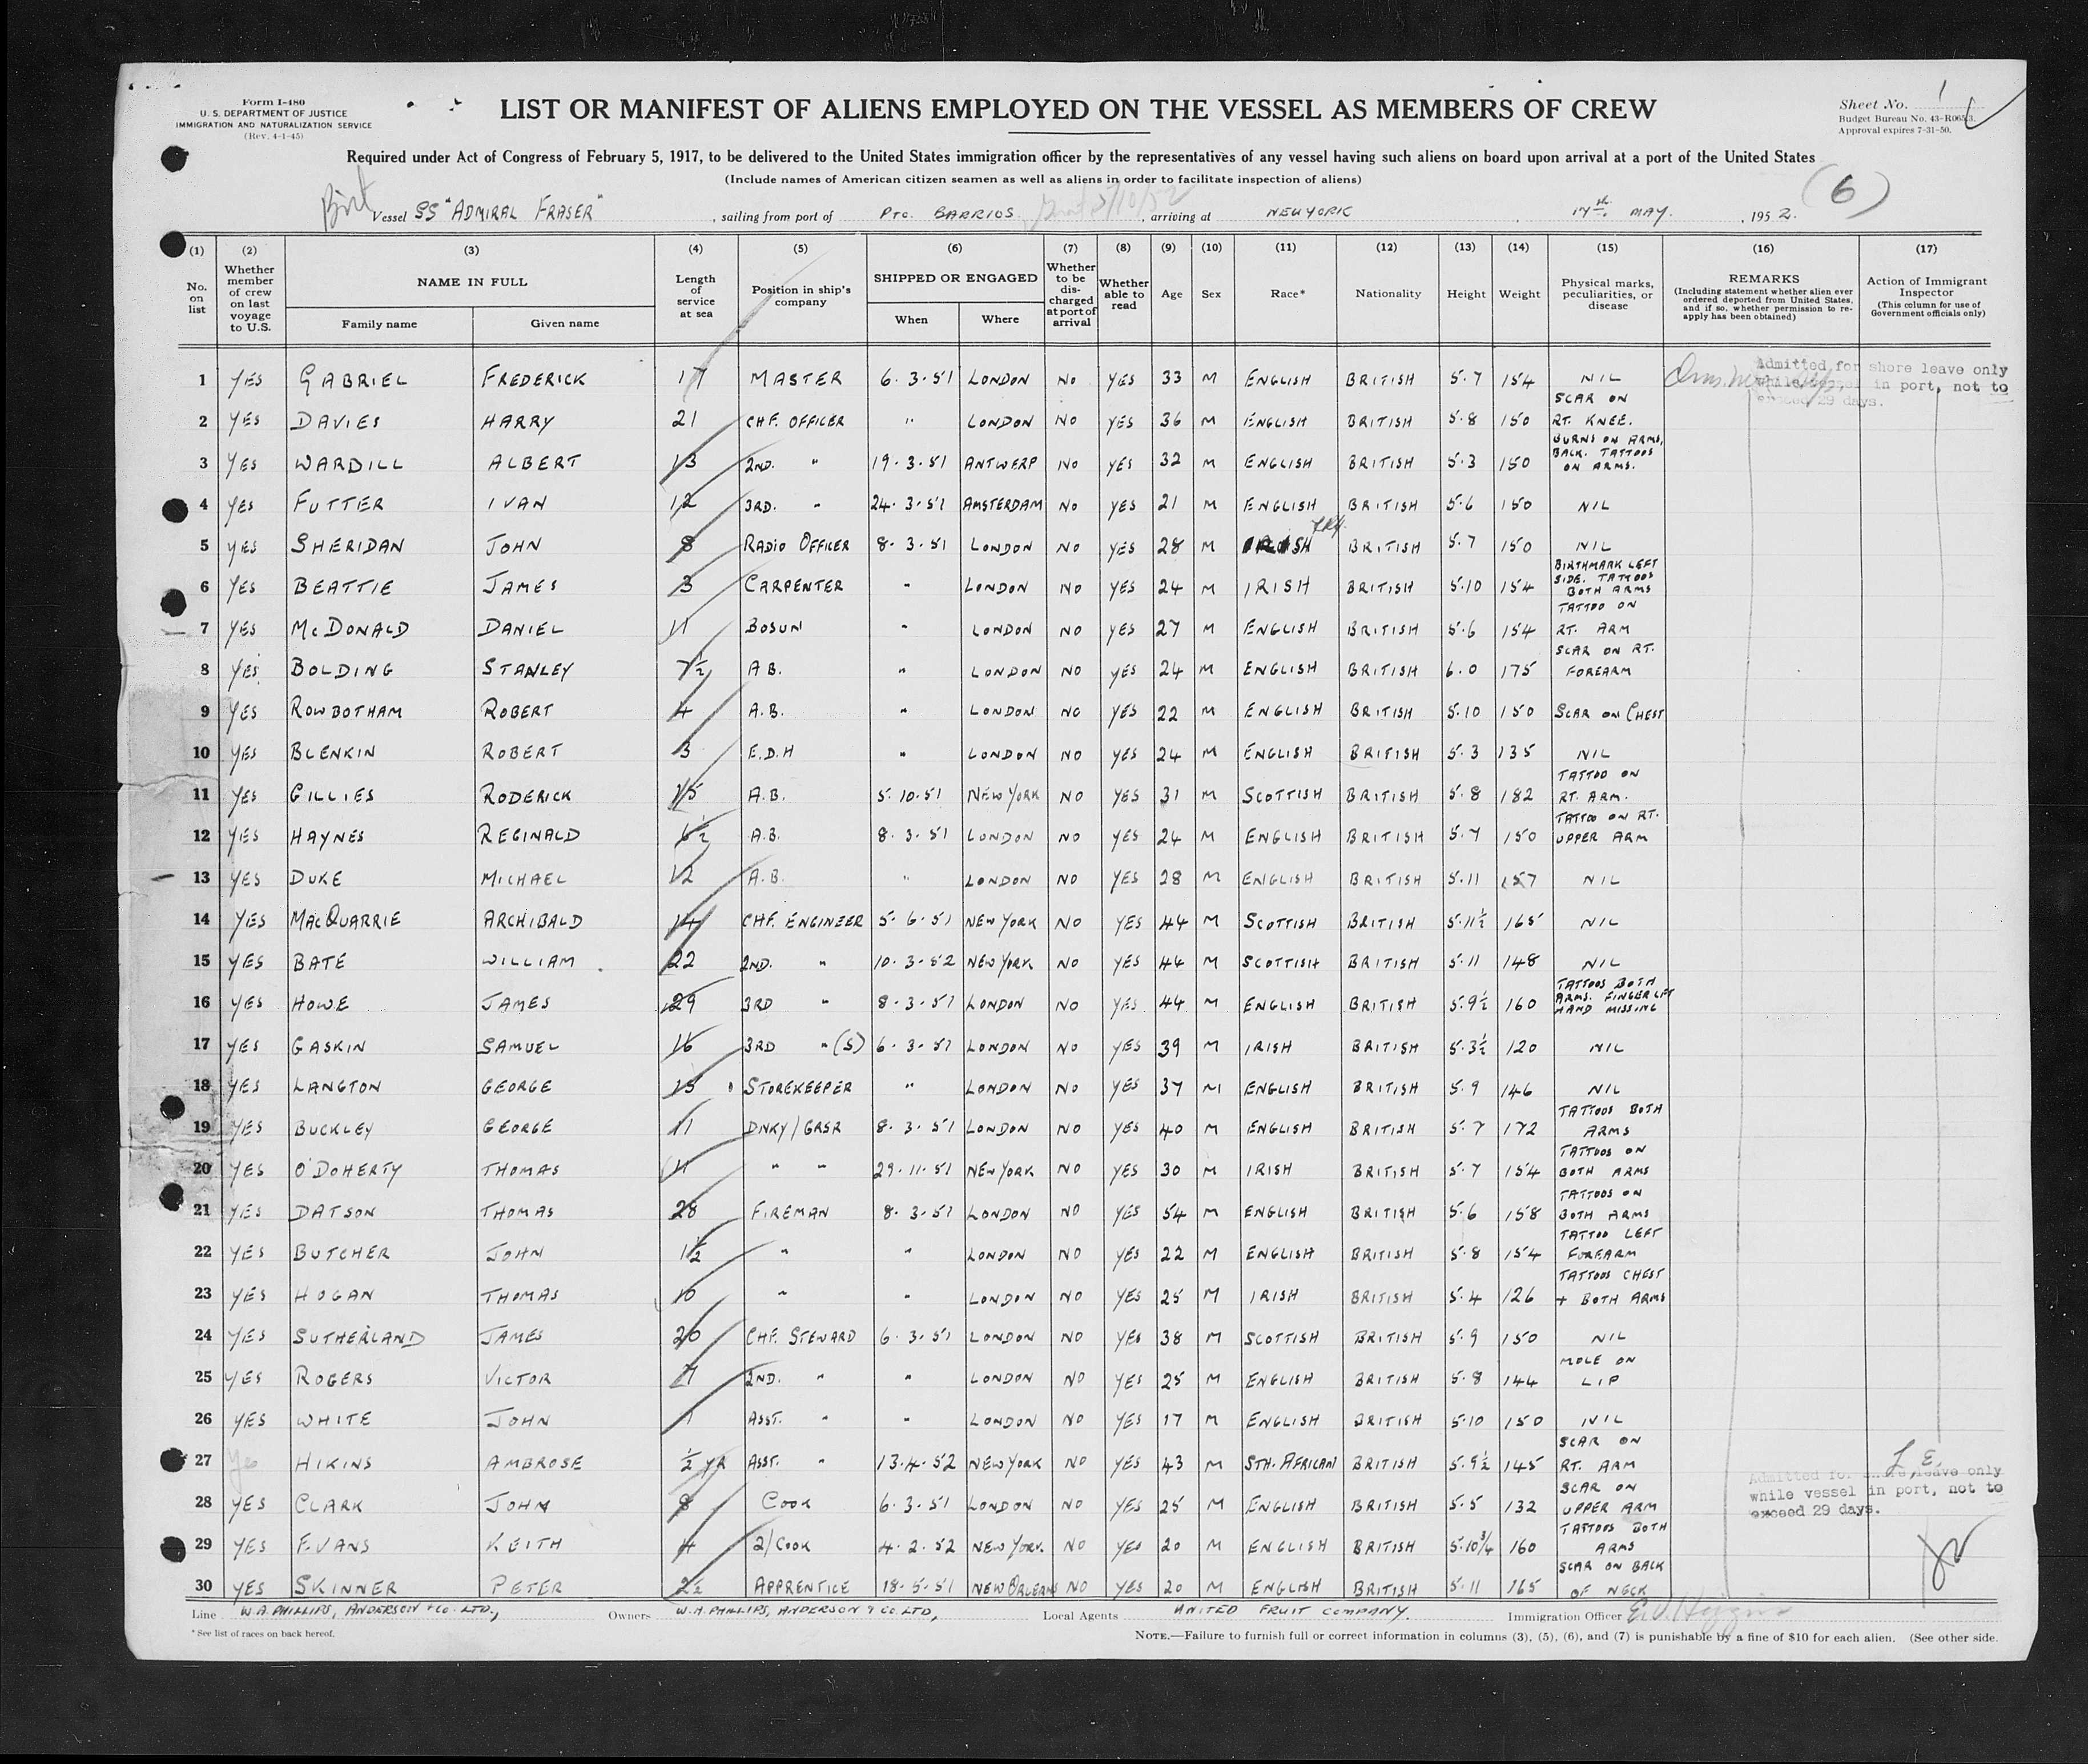 Form I-480
U. S. DEPARTMENT OF JUSTICE
IMMIGRATION AND NATURALIZATION SERVICE
(Rev. 4-1-45)
LIST OR MANIFEST OF ALIENS EMPLOYED ON THE VESSEL AS MEMBERS OF CREW
Sheet No. 1
Budget Bureau No. 43-R065.3.
Approval expires 7-31-50.
Required under Act of Congress of February 5, 1917, to be delivered to the United States immigration officer by the representatives of any vessel having such aliens on board upon arrival at a port of the United States
(Include names of American citizen seamen as well as aliens in order to facilitate inspection of aliens)
(6)
Brit Vessel SS "ADMIRAL FRASER", sailing from port of PTO. BARRIOS 5/10/52, arriving at NEW YORK, 17th MAY, 1952.
(1) (2) (3) (4) (5) (6) (7) (8) (9) (10) (11) (12) (13) (14) (15) (16) (17)
No. on list
Whether member of crew on last voyage to U.S.
NAME IN FULL
Family name Given name
Length of service at sea
Position in ship's company
SHIPPED OR ENGAGED
When Where
Whether to be discharged at port of arrival
Whether able to read
Age
Sex
Race*
Nationality
Height
Weight
Physical marks, peculiarities, or disease
REMARKS
(Including statement whether alien ever ordered deported from United States, and if so, whether permission to reapply has been obtained)
Action of Immigrant Inspector
(This column for use of Government officials only)
1 YES GABRIEL FREDERICK 17 MASTER 6.3.51 LONDON NO YES 33 M ENGLISH BRITISH 5.7 154 NIL
Admitted for shore leave only
while vessel in port, not to
exceed 29 days.
2 YES DAVIES HARRY 21 CHF. OFFICER " LONDON NO YES 36 M ENGLISH BRITISH 5.8 150 SCAR ON RT. KNEE.
3 YES WARDILL ALBERT 13 2ND. " 19.3.51 ANTWERP NO YES 32 M ENGLISH BRITISH 5.3 150 BURNS ON ARMS, BACK. TATTOOS ON ARMS.
4 YES FUTTER IVAN 12 3RD. " 24.3.51 AMSTERDAM NO YES 21 M ENGLISH BRITISH 5.6 150 NIL
5 YES SHERIDAN JOHN 8 RADIO OFFICER 8.3.51 LONDON NO YES 28 M IRISH BRITISH 5.7 150 NIL
6 YES BEATTIE JAMES 3 CARPENTER " LONDON NO YES 24 M IRISH BRITISH 5.10 154 BIRTHMARK LEFT SIDE. TATTOOS BOTH ARMS
7 YES McDONALD DANIEL 11 BOSUN " LONDON NO YES 27 M ENGLISH BRITISH 5.6 154 TATTOO ON RT. ARM
8 YES BOLDING STANLEY 7½ A B. " LONDON NO YES 24 M ENGLISH BRITISH 6.0 175 SCAR ON RT. FOREARM
9 YES ROWBOTHAM ROBERT 4 A.B. " LONDON NO YES 22 M ENGLISH BRITISH 5.10 150 SCAR ON CHEST
10 YES BLENKIN ROBERT 3 E.D.H " LONDON NO YES 24 M ENGLISH BRITISH 5.3 135 NIL
11 YES GILLIES RODERICK 15 A.B. 5.10.51 NEW YORK NO YES 31 M SCOTTISH BRITISH 5.8 182 TATTOO ON RT. ARM.
12 YES HAYNES REGINALD 6½ A.B. 8.3.51 LONDON NO YES 24 M ENGLISH BRITISH 5.7 150 TATTOO ON RT. UPPER ARM
13 YES DUKE MICHAEL 12 A.B. " LONDON NO YES 28 M ENGLISH BRITISH 5.11 157 NIL
14 YES MACQUARRIE ARCHIBALD 14 CHF. ENGINEER 5.6.51 NEW YORK NO YES 44 M SCOTTISH BRITISH 5.11½ 165 NIL
15 YES BATE WILLIAM 22 2ND. " 10.3.52 NEW YORK NO YES 44 M SCOTTISH BRITISH 5.11 148 NIL
16 YES HOWE JAMES 29 3RD " 8.3.51 LONDON NO YES 44 M ENGLISH BRITISH 5.9½ 160 TATTOOS BOTH ARMS. FINGER LFT HAND MISSING
17 YES GASKIN SAMUEL 16 3RD " (S) 6.3.51 LONDON NO YES 39 M IRISH BRITISH 5.3½ 120 NIL
18 YES LANGTON GEORGE 15 STOREKEEPER " LONDON NO YES 37 M ENGLISH BRITISH 5.9 146 NIL
19 YES BUCKLEY GEORGE 11 DNKY/GRSR 8.3.51 LONDON NO YES 40 M ENGLISH BRITISH 5.7 172 TATTOOS BOTH ARMS
20 YES O'DOHERTY THOMAS 11 " " 29.11.51 NEW YORK NO YES 30 M IRISH BRITISH 5.7 154 TATTOOS ON BOTH ARMS
21 YES DATSON THOMAS 28 FIREMAN 8.3.51 LONDON NO YES 54 M ENGLISH BRITISH 5.6 158 TATTOOS ON BOTH ARMS
22 YES BUTCHER JOHN 1½ " " LONDON NO YES 22 M ENGLISH BRITISH 5.8 154 TATTOO LEFT FOREARM
23 YES HOGAN THOMAS 10 " " LONDON NO YES 25 M IRISH BRITISH 5.4 126 TATTOOS CHEST + BOTH ARMS
24 YES SUTHERLAND JAMES 20 CHF. STEWARD 6.3.51 LONDON NO YES 38 M SCOTTISH BRITISH 5.9 150 NIL
25 YES ROGERS VICTOR 7 2ND. " " LONDON NO YES 25 M ENGLISH BRITISH 5.8 144 MOLE ON LIP
26 YES WHITE JOHN 1 ASST. " " LONDON NO YES 17 M ENGLISH BRITISH 5.10 150 NIL
27 Yes HIKINS AMBROSE ½ YR ASST. " 13.4.52 NEW YORK NO YES 43 M STH. AFRICAN BRITISH 5.9½ 145 SCAR ON RT. ARM
Admitted for shore leave only
while vessel in port, not to
exceed 29 days.
28 YES CLARK JOHN 8 COOK 6.3.51 LONDON NO YES 25 M ENGLISH BRITISH 5.5 132 SCAR ON UPPER ARM
29 YES EVANS KEITH 4 2/COOK 4.2.52 NEW YORK. NO YES 20 M ENGLISH BRITISH 5.10¾ 160 TATTOOS BOTH ARMS
30 YES SKINNER PETER 2½ APPRENTICE 18.5.51 NEW ORLEANS NO YES 20 M ENGLISH BRITISH 5.11 165 SCAR ON BACK OF NECK
Line W.A. PHILLIPS, ANDERSON & CO. LTD., Owners W.A. PHILLIPS, ANDERSON & CO LTD, Local Agents UNITED FRUIT COMPANY. Immigration Officer
*See list of races on back hereof.
NOTE.—Failure to furnish full or correct information in columns (3), (5), (6), and (7) is punishable by a fine of $10 for each alien. (See other side.